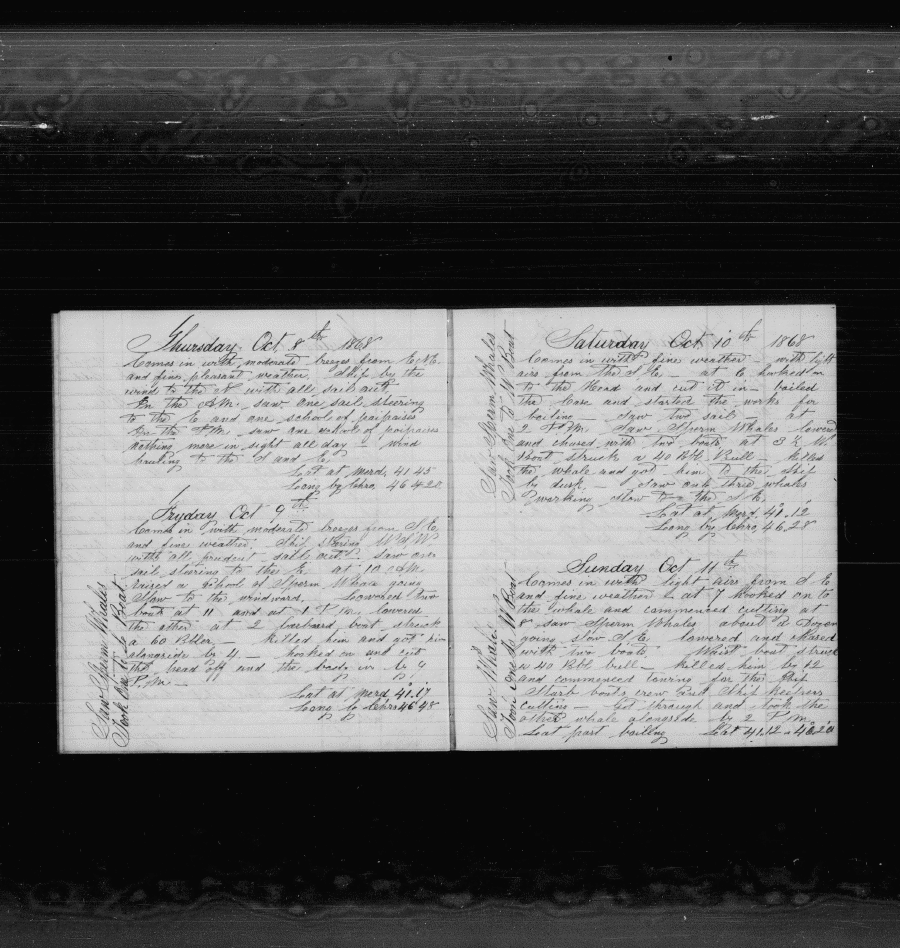 Thursday Oct 8th 1868
Comes in with moderate breezes from E.N.E.
and fine pleasant weather Ship by the
wind to the N with all sail out
In the A.M. saw one sail steering
to the E and one school of poipoises
In the P.M. saw one school of poipoises
nothing more in sight all day - wind
hauling to the S and E.
Lat at merd 41 45
Long by Chro 46 42
Fryday Oct 9th
Comes in with moderate breezes from S E
and fine weather Ship stering W S W
with all prudent sail out. Saw one
sail stering to the E. at 10 A.M.
raised a school of Sperm Whale going
slow to the windward. Lowered two
boats at 11 and at 1 P.M. lowered
the other at 2 larboard boat struck
a 60 Bbler - killed him and got him
alongside by 4 - hooked on and cut
the head off and the body in by
P.M. -
Lat at merd 41.17
Long by Chro 46 48
Saw Sperm Whales
Took One to Boat
Saturday Oct 10th 1868
Comes in with fine weather - with light
airs from the S E - at 6 hooked on
to the Head and cut it in - bailed
the Case and started the works for
boiling. Saw two sail - at
2 P.M. Saw Sperm Whales lowered
and chased with two boats at 3 W
Boat struck a 40 Bbl Bull - killed
the whale and got him to the ship
by dusk - Saw only three whales
working slow to the S E
Lat at merd 41.12
Long by Chro 46.28
Saw Sperm Whales
Took One to W Boat
Sunday Oct 11th
Comes in with light airs from S E
and fine weather - at 7 hooked on to
the whale and commenced cutting at
8 saw Sperm Whales about a Dozen
going slow S.E. lowered and chased
with two boats Waist boat struck
a 40 Bbl bull - killed him by 12
and commenced towing for the Ship
Starb boats crew and Ship keepers
cutting - Got through and took the
other whale alongside by 2 P.M.
Last part boiling Lat 41.12
Saw Whales
One to W Boat